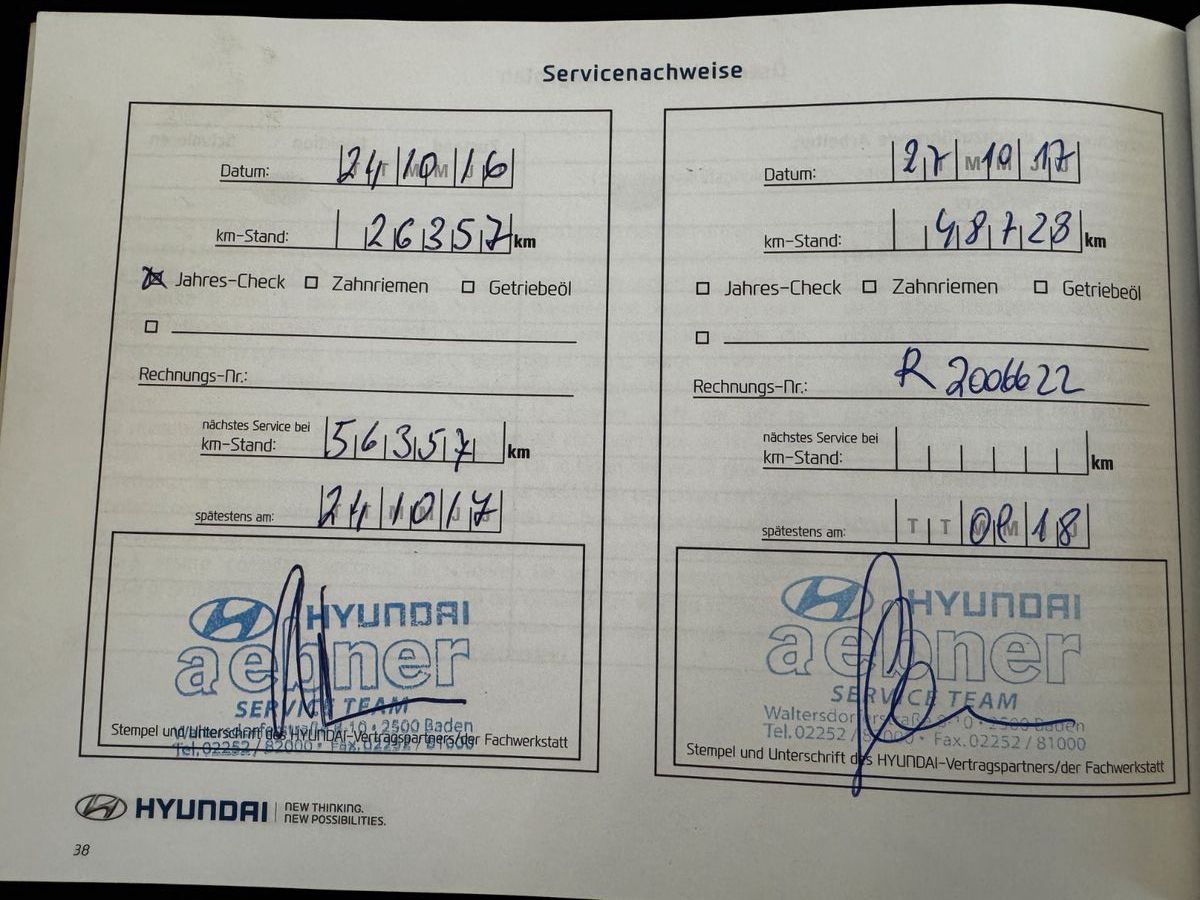 Servicenachweise
Datum: 24 10 16
km-Stand: 26357 km
Jahres-Check Zahnriemen Getriebeöl
Rechnungs-Nr.:
nächstes Service bei
km-Stand: 56357 km
spätestens am: 24 10 17
HYUNDAI
aebner
SERVICE TEAM
2500 Baden
Tel. 02252 / 82000 • Fax. 02252 / 81000
Stempel und Unterschrift des HYUNDAI-Vertragspartners/der Fachwerkstatt
Datum: 27 10 17
km-Stand: 48728 km
Jahres-Check Zahnriemen Getriebeöl
Rechnungs-Nr.: R 2006622
nächstes Service bei
km-Stand: km
spätestens am: T T 18
HYUNDAI
aebner
SERVICE TEAM
Waltersdorferstraße 10 • 2500 Baden
Tel. 02252 / 82000 • Fax. 02252 / 81000
Stempel und Unterschrift des HYUNDAI-Vertragspartners/der Fachwerkstatt
HYUNDAI NEW THINKING.
NEW POSSIBILITIES.
38